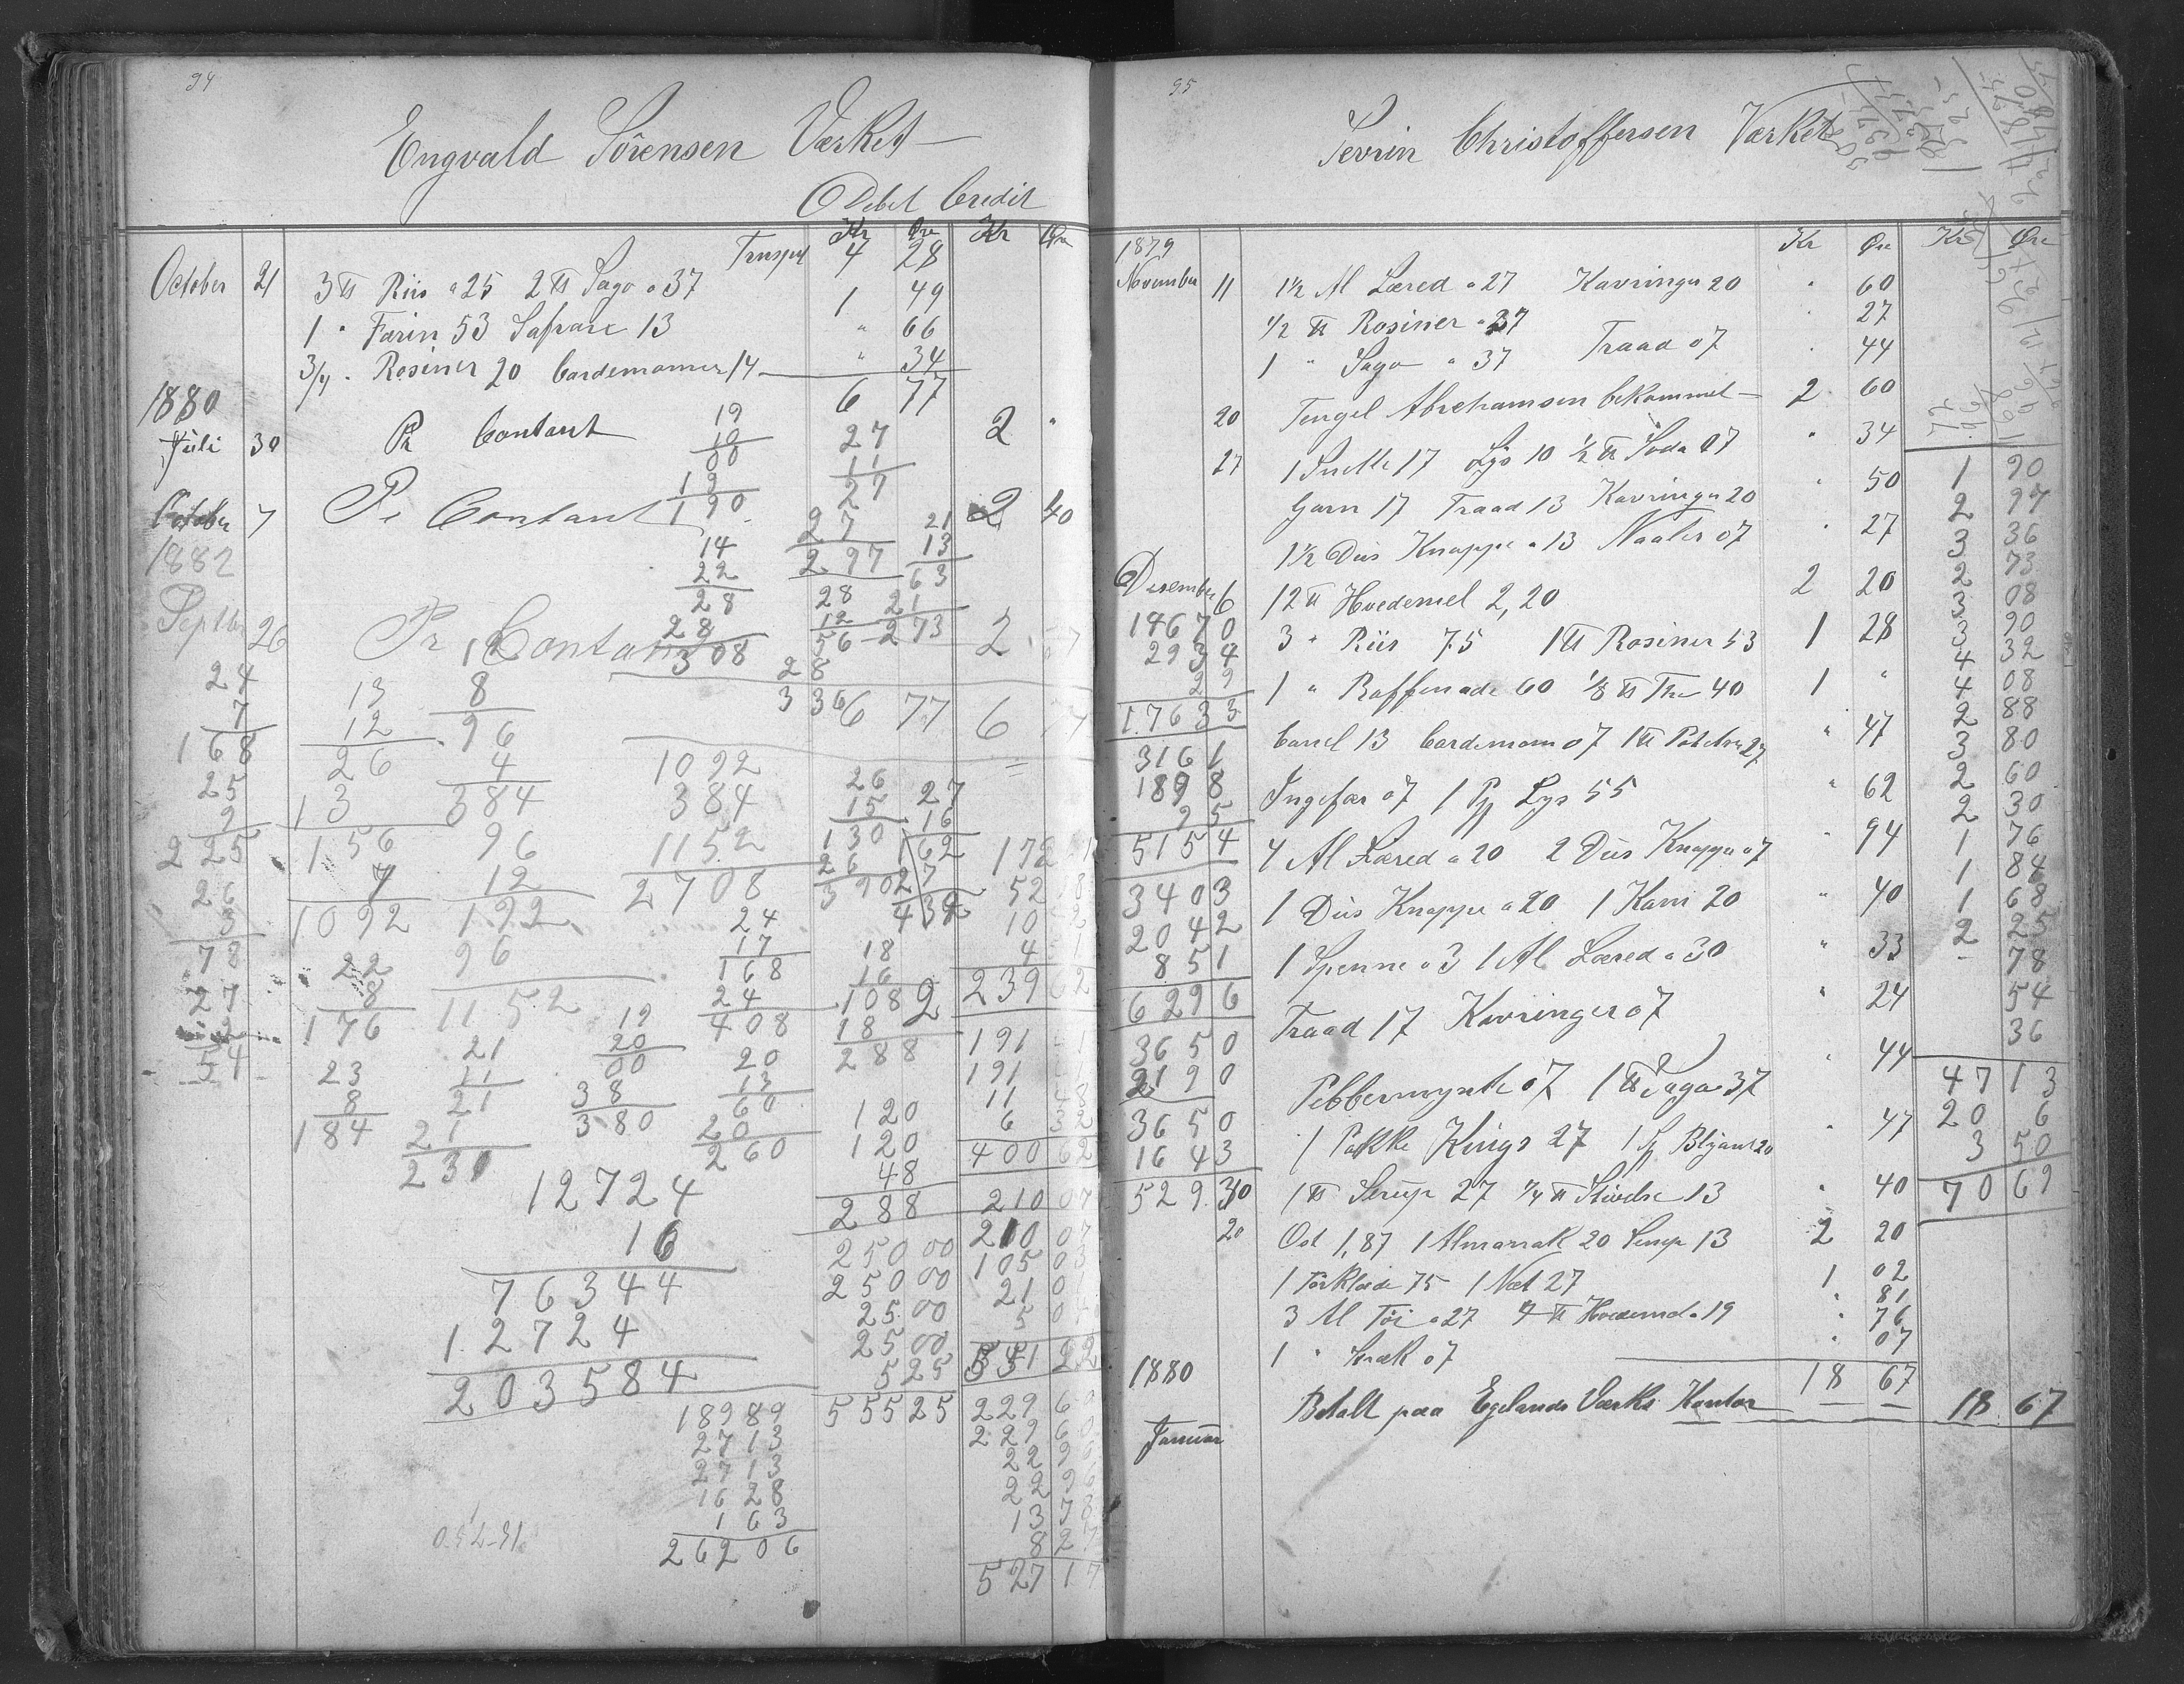 94
Engvald Sörensen Værket
Debet Credit
Kr Øre Kr Øre
Transport 4 28
October 21 3 ℔ Riis a 25 2 ℔ Sago a 37 1 49
1 " Farin 53 Safran 13 " 66
3/4 " Rosiner 20 Cardemomer 14 " 34
6 77
1880
Juli 30 Pr Contant 2 "
October 7 Pr Contant 2 40
1882
Septbr 26 Pr Contant 2
6 77 6
19
10
00
19
190
27
11
27
27
297
14
22
28
28
308
21
13
63
21
273
28
12
56
28
336
24
7
168
25
9
225
26
3
78
27
2
54
13
12
26
13
156
7
1092
22
8
176
23
8
184
12
8
96
4
384
96
12
192
96
1152
21
11
21
21
231
1092
384
1152
2708
19
20
00
38
380
24
17
168
24
408
20
13
60
20
260
26
15
130
26
390
27
16
162
27
432
18
16
108
18
288
120
120
48
288
250 00
250 00
25 00
25 00
5 25
555 25
12724
16
76344
12724
203584
18989
2713
2713
1628
163
26206
172
52
10
4
239 62
191
191
11 48
6 32
400 62
210 07
210 07
105 03
21 01
5 0
551 22
229 60
229 60
22 96
22 96
13 78
8 27
527 17
95
Sevrin Christoffersen Værket
Kr Øre Kr Øre
1879
November 11 1 1/2 Al Læred a 27 Kavringer 20 " 60
1/2 ℔ Rosiner a 37 " 27
1 " Sago a 37 Traad 07 " 44
20 Tengel Abrehamsen bekommet 2 60
27 1 Snelle 17 Lys 10 1/2 ℔ Soda 07 " 34
Garn 17 Traad 13 Kavringer 20 " 50
1 1/2 Dus Knappe a 13 Naaler 07 " 27
Desember 6 12 ℔ Hvedemel 2,20 2 20
3 " Riis 75 1 ℔ Rosiner 53 1 28
1 " Raffenade 60 1/8 ℔ The 40 1 "
Canel 13 Cardemom 07 1 ℔ 27 " 47
Ingefær 07 1 Pk Lys 55 " 62
4 Al Læred a 20 2 Dus Knappe a 7 " 94
1 Dus Knappe a 20 1 Kam 20 " 40
1 Spenne a 3 1 Al Læred a 30 " 33
Traad 17 Kavringer 07 " 24
Pebbermynte 07 1 ℔ Sago 37 " 44
1 Pakke Kings 27 1 Blyant 20 " 47
1 ℔ Sirup 27 1/4 ℔ Stivelse 13 " 40
20 Ost 1,87 1 Almanak 20 Senep 13 2 20
1 Törklæde 75 1 Net 27 1 02
3 Al Töi a 27 " 81
4 ℔ Hvedemel a 19 " 76
1 " 07 " 07
18 67
1880
Januar Betalt paa Egelands Værks Kontor 18 67
14670
2934
29
17633
3161
1898
95
5154
3403
2042
851
6296
3650
2190
3650
1643
529 30
1 90
2 97
3 36
2 73
3 08
3 90
4 32
4 08
2 88
3 80
2 60
2 30
1 76
1 84
1 68
2 25
- 78
54
36
47 13
20 6
3 50
70 69